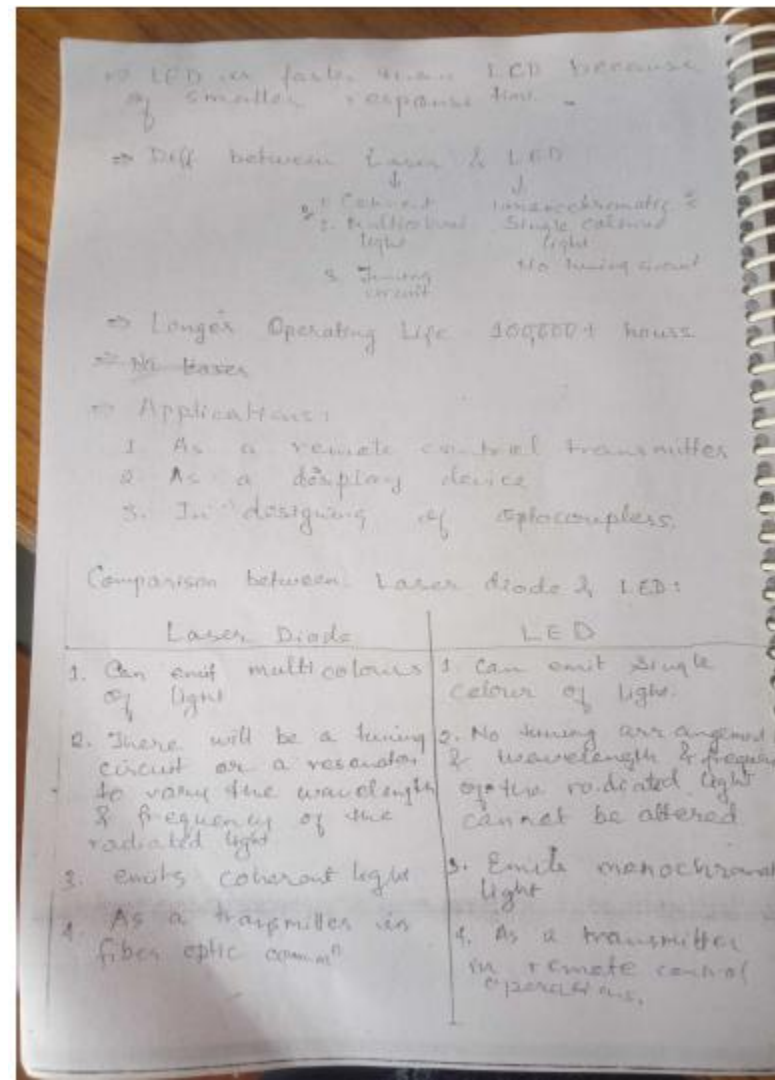 ⇒ LED is faster than LCD because
of smaller response time.
⇒ Diff between Laser & LED
↓ ↓
1. Coherent 1. monochromatic
2. Multicolour Single coloured
light light
3. Tuning No tuning circuit
circuit
⇒ Longer Operating Life 100,000+ hours
⇒ Applications:
1. As a remote control transmitter
2. As a display device
3. In designing of optocouplers.
Comparison between Laser diode & LED:
Laser Diode LED
1. Can emit multicolours
of light
1. Can emit single
colour of light.
2. There will be a tuning
circuit or a resonator
to vary the wavelength
& frequency of the
radiated light
2. No tuning arrangement
& wavelength & frequen
of the radiated light
cannot be altered.
3. emits coherent light
3. Emits monochromat
light
4. As a transmitter in
fiber optic commⁿ
4. As a transmitter
in remote control
operations.